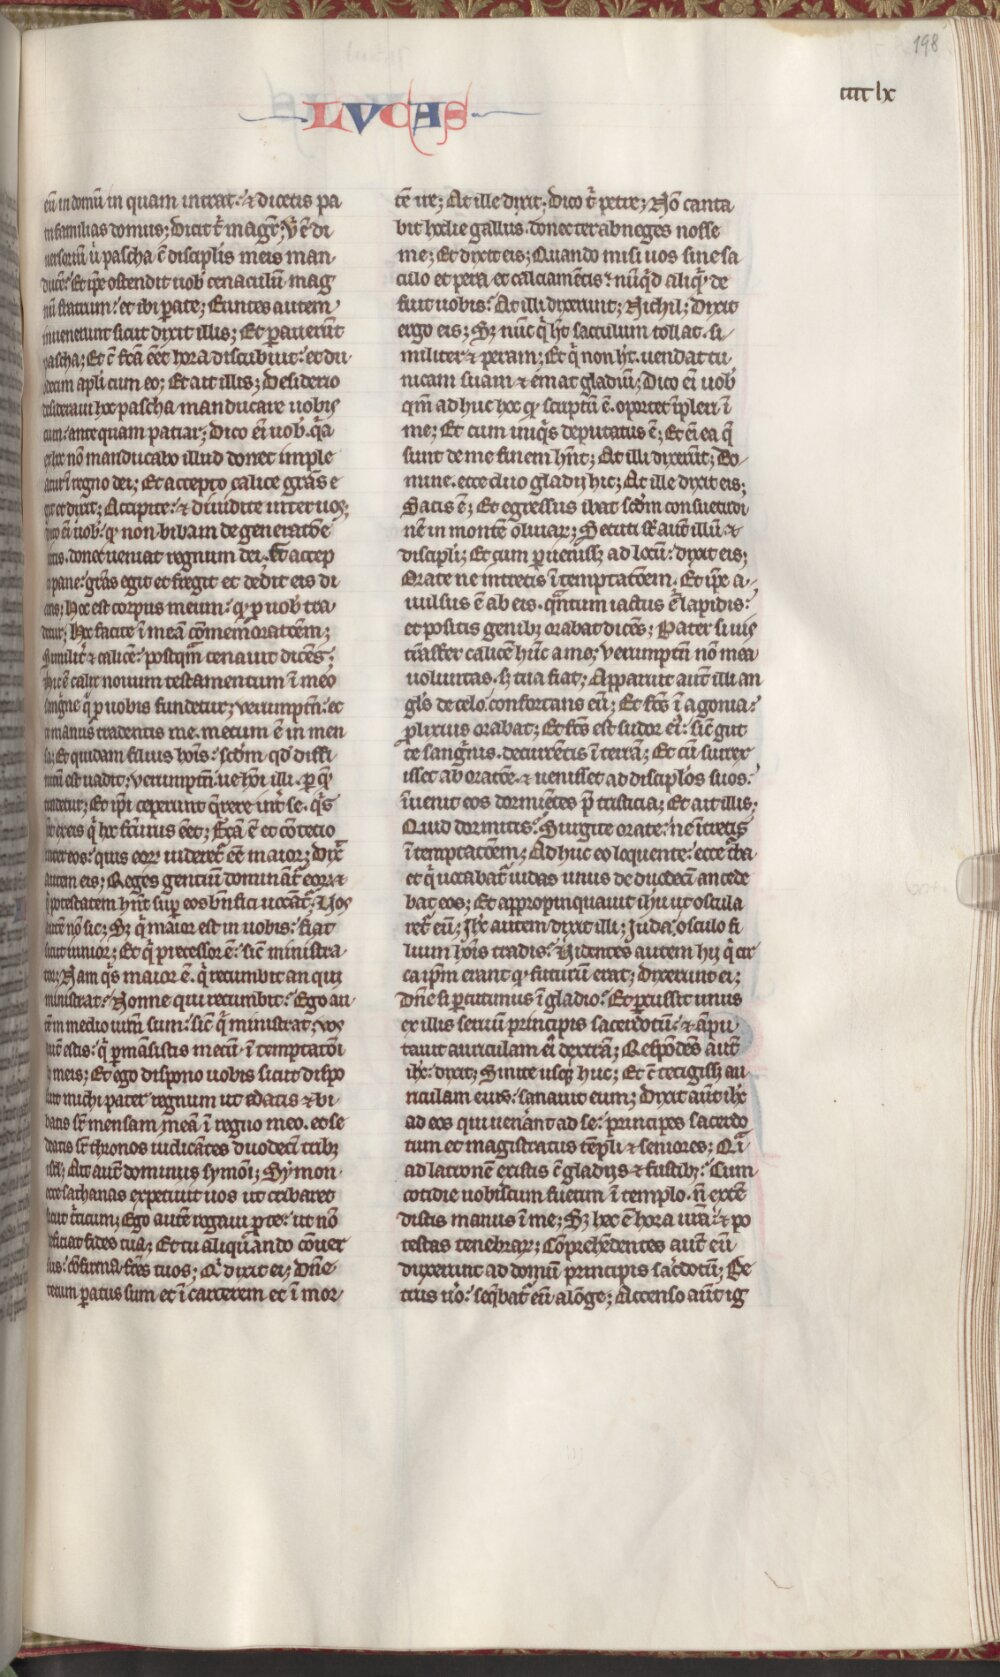 198
cccc lx
LVCAS
eū in domū in quam intrat: et dicetis pa
tri familias domus; Dicit t̄ magr̄; Vbi ē di
uersoriū ubi pascha cū discipl̄is meis man-
ducē: Et ip̄e ostendit uob̄ cenaculū mag
nū stratum: et ibi parate; Euntes autem
inuenerunt sicut dixit illis; Et parauerūt
pascha; Et cū fc̄a eēt hora discubuit: et du-
odecim apl̄i cum eo; Et ait illis; Desiderio
desideraui hoc pascha manducare uobis
cum: ante quam patiar; Dico ei uob̄. q̄a
ex hoc nō manducabo illud donec imple
atur ī regno dei; Et accepto calice gr̄as e
git et dixit; Accipite: et diuidite inter uos;
dico ei uob̄: qꝫ non bibam de generatōe
uitis. donec ueniat regnum dei. Et accep
to pane: gr̄as egit et fregit et dedit eis di
cens; Hoc est corpus meum: qꝫ p uob̄ tra
detur; Hoc facite ī meā cōmemoratōem;
Similit̄ et calicē: postqm̄ cenauit dicēs;
Hic ē calix nouum testamentum ī meo
sanguine qͥ p uobis fundetur; Verumptn̄: ecce
manus tradentis me. mecum ē in men
sa; Et quidam filius hoīs: scd̄m qd̄ diffi
nitū est uadit; Verumptn̄. ue hōi illi. p quē
tradetur; Et ip̄i ceperunt q̄rere int̄ se. qͥs
eēt ex eis qͥ hoc fc̄turus eēt; Fc̄a ē et cōtētio
inter eos: quis eoꝝ uideret̄ eē maior; Dix̄
autem eis; Reges gentiū dominant̄ eoꝝ: et
qͥ potestatem hn̄t sup̄ eos bn̄fici uocant̄; Uos
autē nō sic; Sꝫ qͥ maior est in uobis: fiat
sicut iunior; Et qͥ precessor ē: sic̄ ministra-
tor; Nam qͥs maior ē. qͥ recumbit an qui
ministrat: Nonne qui recumbit: Ego au-
tē in medio urm̄ sum: sic̄ qͥ ministrat; Vos
autē estis: qͥ pmāsistis mecū ī temptatōi
bꝫ meis; Et ego dispono uobis sicut dispo
suit michi pater regnum ut edatis et bi-
batis sr̄ mensam meā ī regno meo. et se
deatis sr̄ thronos iudicātes duodecī tribꝫ
isl̄; Ait autē dominus symōi; Symon
ecce sathanas expetiuit uos ut cribaret
sicut t̄ticum; Ego autē rogaui p te: ut nō
deficiat fides tua; Et tu aliquando cōuer
sus: cōfirma fr̄es tuos; Qͥ dixit ei; Dn̄e
tecum paratus sum et ī carcerem et ī mor-
tē ire; At ille dixit; Dico t̄ petre; Nō canta
bit hodie gallus. donec ter abneges nosse
me; Et dixit eis; Quando misi uos sine sa
culo et pera et calciamētis: nūqͥd aliqͥd de
fuit uobis: At illi dixerunt; Nichil; Dixit
ergo eis; Sꝫ nūc qͥ hꝫ sacculum tollat. si-
militer et peram; Et qͥ non hꝫ. uendat tu-
nicam suam et emat gladiū; Dico ei uob̄
qm̄ ad huc hoc qꝫ scriptū ē. oportet īpleri ī
me; Et cum iniqͥs deputatus ē; Et ei ea q̄
sunt de me finem hn̄t; At illi dixerūt; Do-
mine. ecce duo gladij hic; At ille dixit eis;
Satis ē; Et egressus ibat scd̄m consuetudi
nē in montē oliuaꝝ; Secuti sr̄ autē illū et
discipl̄i; Et cum puenissꝫ ad locū: dixit eis;
Orate ne intretis ī temptatōem. Et ip̄e a-
uulsus ē ab eis. qn̄tum iactus ē lapidis:
et positis genibꝫ orabat dicēs; Pater si uis
trāsfer calicē hūc a me; Verumptn̄ nō mea
uoluntas. sꝫ tua fiat; Apparuit autē illi an
gl̄s de celo. confortans eū; Et fc̄s ī agonia:
plixius orabat; Et fc̄s est sudor ei: sic̄ gut
te sangͥnis. decurētis ī terrā; Et cū surrex
isset ab oratōe. et uenisset ad discipl̄os suos:
īuenit eos dormiētes p̄ tristicia; Et ait illis;
Quid dormitis: Surgite orate: ne ītretis
ī temptatōem; Ad huc eo loquente: ecce t̄ba
et qͥ uocabat̄ iudas unus de duodecī antede
bat eos; Et appropinquauit ih̄u ut oscula
ret̄ eū; Ih̄c autem dixit illi; Iuda. osculo fi
lium hoīs tradis: Videntes autem hij qͥ cir
ca ip̄m erant qꝫ futurū erat; Dixerunt ei;
Dn̄e si pcutimus ī gladio: Et pcussit unus
ex illis seruū principis sacerdotū: et āpu
tauit auriculam ei dextrā; Respōdēs autē
ih̄c: dixit; Sinite usqꝫ huc; Et cū tetigissꝫ au-
riculam eius: sanauit eum; Dixit autē ih̄c
ad eos qui uenerant ad se: principes sacerdo
tum et magistratus tēpl̄i et seniores; Qͣi
ad latronē existis cū gladijs et fustibꝫ: Cum
cotidie uobiscum fuerim ī templo. n̄ exten
distis manus ī me; Sꝫ hec ē hora ur̄a: et po
testas tenebraꝝ; Cōprehēdentes autē eū
duxerunt ad domū principis sac̄dotū; Pe
trus uͦo: seqͥbat̄ eū a lōge; Accenso autē ig